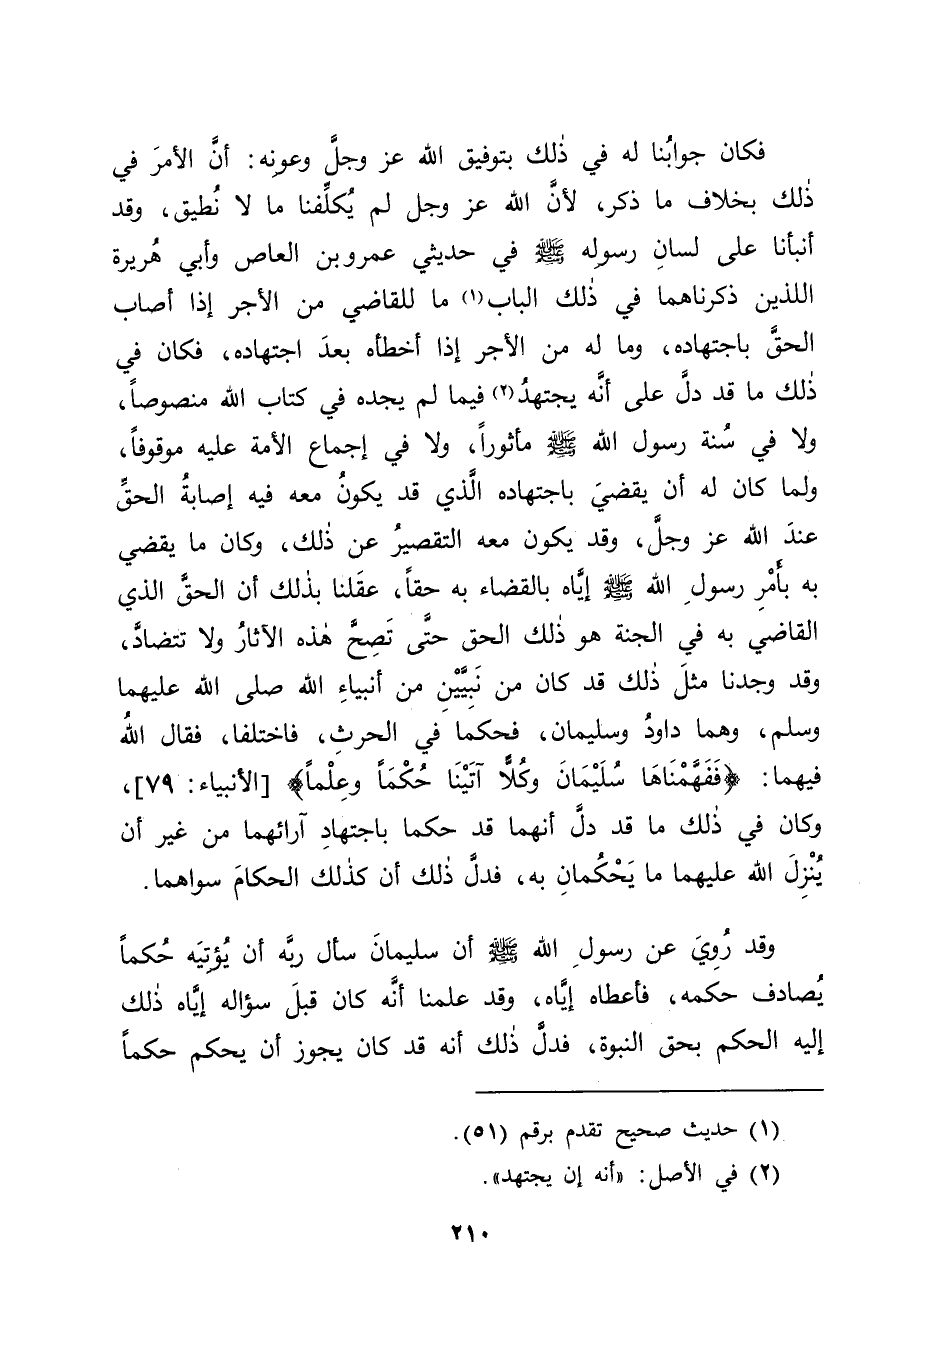 فكان جوابُنا له في ذٰلك بتوفيق الله عز وجلَّ وعونِه: أنَّ الأمرَ في
ذٰلك بخلاف ما ذكر، لأنَّ الله عز وجل لم يُكلِّفنا ما لا نُطيق، وقد
أنبأنا على لسانِ رسولِه ﷺ في حديثي عمرو بن العاص وأبي هُريرة
اللذين ذكرناهما في ذٰلك الباب(١) ما للقاضي من الأجر إذا أصاب
الحقَّ باجتهاده، وما له من الأجر إذا أخطأه بعدَ اجتهاده، فكان في
ذٰلك ما قد دلَّ على أنَّه يجتهدُ(٢) فيما لم يجده في كتاب الله منصوصاً،
ولا في سُنة رسول الله ﷺ مأثوراً، ولا في إجماع الأمة عليه موقوفاً،
ولما كان له أن يقضيَ باجتهاده الَّذي قد يكونُ معه فيه إصابةُ الحقِّ
عندَ الله عز وجلَّ، وقد يكون معه التقصيرُ عن ذٰلك، وكان ما يقضي
به بأَمْرِ رسولِ الله ﷺ إيَّاه بالقضاء به حقاً، عقَلنا بذٰلك أن الحقَّ الذي
القاضي به في الجنة هو ذٰلك الحق حتَّى تَصِحَّ هٰذه الآثارُ ولا تتضادَّ،
وقد وجدنا مثلَ ذٰلك قد كان من نَبِيَّيْنِ من أنبياءِ الله صلى الله عليهما
وسلم، وهما داودُ وسليمان، فحكما في الحرثِ، فاختلفا، فقال اللهُ
فيهما: ﴿فَفَهَّمْنَاهَا سُلَيْمَانَ وكُلًّا آتَيْنَا حُكْمَاً وعِلْماً﴾ [الأنبياء: ٧٩]،
وكان في ذٰلك ما قد دلَّ أنهما قد حكما باجتهادِ آرائهما من غير أن
يُنْزِلَ الله عليهما ما يَحْكُمانِ به، فدلَّ ذٰلك أن كذٰلك الحكامَ سواهما.
وقد رُوِيَ عن رسولِ الله ﷺ أن سليمانَ سأل ربَّه أن يُؤتِيَه حُكماً
يُصادف حكمه، فأعطاه إيَّاه، وقد علمنا أنَّه كان قبلَ سؤاله إيَّاه ذٰلك
إليه الحكم بحق النبوة، فدلَّ ذٰلك أنه قد كان يجوز أن يحكم حكماً
(١) حديث صحيح تقدم برقم (٥١).
(٢) في الأصل: «أنه إن يجتهد».
٢١٠